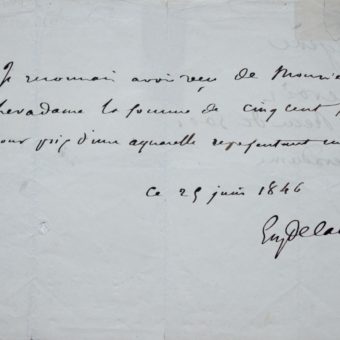 Je reconnais avoir reçu de Monsie
hevadame la somme de cinq cent f
our prix d'une aquarelle representant un
ce 25 juin 1846
EugDelac